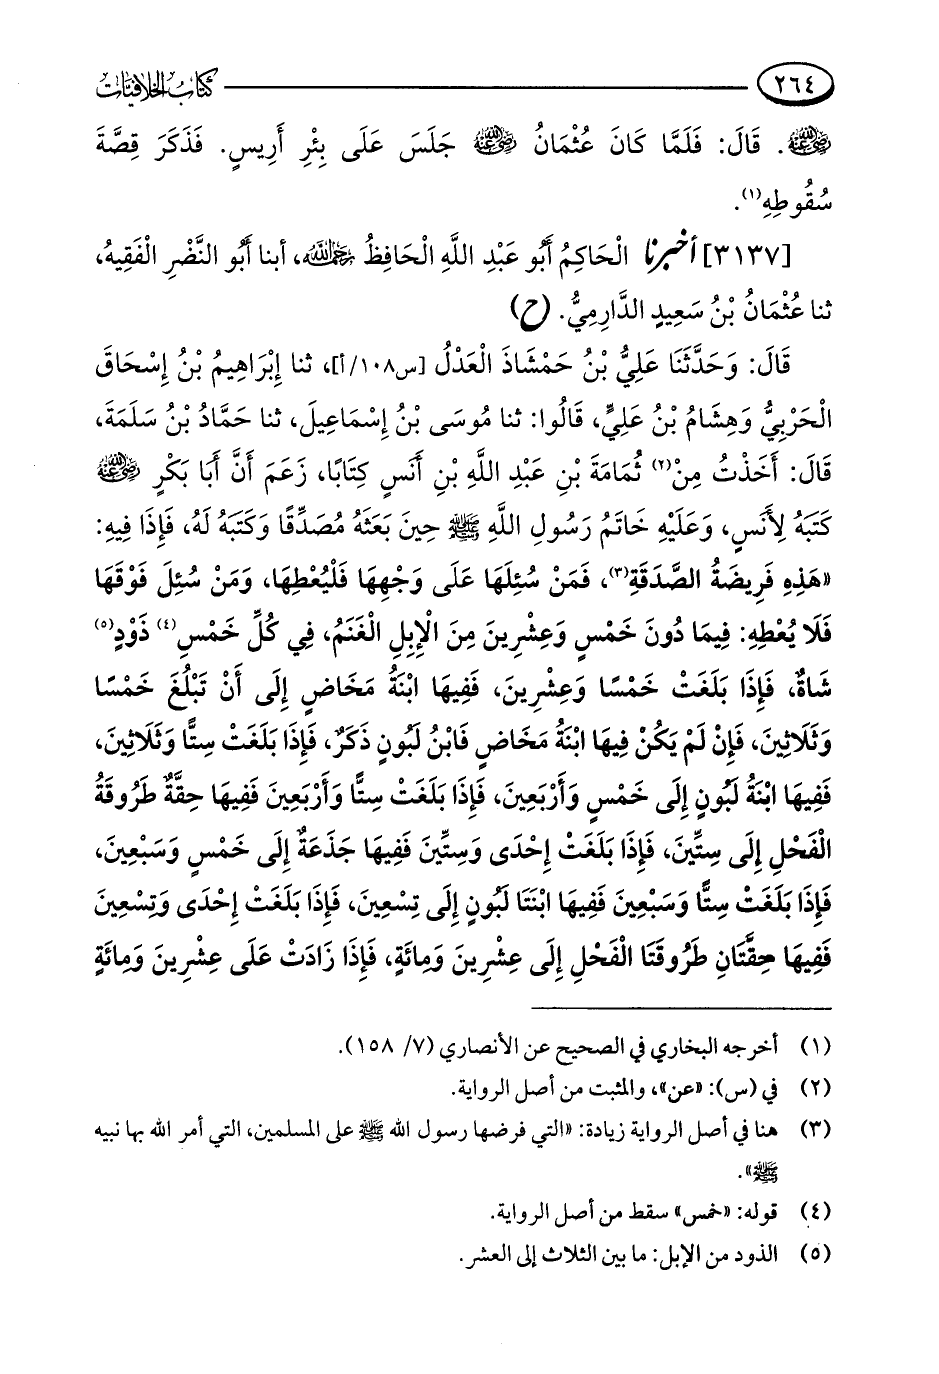 ٢٦٤ كتاب الخلافيات
رضي الله عنه. قَالَ: فَلَمَّا كَانَ عُثْمَانُ رضي الله عنه جَلَسَ عَلَى بِئْرِ أَرِيسٍ. فَذَكَرَ قِصَّةَ
سُقُوطِهِ(١).
[٣١٣٧] أخبرنا الْحَاكِمُ أَبُو عَبْدِ اللَّهِ الْحَافِظُ رحمه الله، أبنا أَبُو النَّضْرِ الْفَقِيهُ،
ثنا عُثْمَانُ بْنُ سَعِيدٍ الدَّارِمِيُّ. (ح)
قَالَ: وَحَدَّثَنَا عَلِيُّ بْنُ حَمْشَاذَ الْعَدْلُ [س١٠٨/أ]، ثنا إِبْرَاهِيمُ بْنُ إِسْحَاقَ
الْحَرْبِيُّ وَهِشَامُ بْنُ عَلِيٍّ، قَالُوا: ثنا مُوسَى بْنُ إِسْمَاعِيلَ، ثنا حَمَّادُ بْنُ سَلَمَةَ،
قَالَ: أَخَذْتُ مِنْ(٢) ثُمَامَةَ بْنِ عَبْدِ اللَّهِ بْنِ أَنَسٍ كِتَابًا، زَعَمَ أَنَّ أَبَا بَكْرٍ رضي الله عنه
كَتَبَهُ لِأَنَسٍ، وَعَلَيْهِ خَاتَمُ رَسُولِ اللَّهِ ﷺ حِينَ بَعَثَهُ مُصَدِّقًا وَكَتَبَهُ لَهُ، فَإِذَا فِيهِ:
«هَذِهِ فَرِيضَةُ الصَّدَقَةِ(٣)، فَمَنْ سُئِلَهَا عَلَى وَجْهِهَا فَلْيُعْطِهَا، وَمَنْ سُئِلَ فَوْقَهَا
فَلَا يُعْطِهِ: فِيمَا دُونَ خَمْسٍ وَعِشْرِينَ مِنَ الْإِبِلِ الْغَنَمُ، فِي كُلِّ خَمْسِ(٤) ذَوْدٍ(٥)
شَاةٌ، فَإِذَا بَلَغَتْ خَمْسًا وَعِشْرِينَ، فَفِيهَا ابْنَةُ مَخَاضٍ إِلَى أَنْ تَبْلُغَ خَمْسًا
وَثَلَاثِينَ، فَإِنْ لَمْ يَكُنْ فِيهَا ابْنَةُ مَخَاضٍ فَابْنُ لَبُونٍ ذَكَرٌ، فَإِذَا بَلَغَتْ سِتًّا وَثَلَاثِينَ،
فَفِيهَا ابْنَةُ لَبُونٍ إِلَى خَمْسٍ وَأَرْبَعِينَ، فَإِذَا بَلَغَتْ سِتًّا وَأَرْبَعِينَ فَفِيهَا حِقَّةٌ طَرُوقَةُ
الْفَحْلِ إِلَى سِتِّينَ، فَإِذَا بَلَغَتْ إِحْدَى وَسِتِّينَ فَفِيهَا جَذَعَةٌ إِلَى خَمْسٍ وَسَبْعِينَ،
فَإِذَا بَلَغَتْ سِتًّا وَسَبْعِينَ فَفِيهَا ابْنَتَا لَبُونٍ إِلَى تِسْعِينَ، فَإِذَا بَلَغَتْ إِحْدَى وَتِسْعِينَ
فَفِيهَا حِقَّتَانِ طَرُوقَتَا الْفَحْلِ إِلَى عِشْرِينَ وَمِائَةٍ، فَإِذَا زَادَتْ عَلَى عِشْرِينَ وَمِائَةٍ
(١) أخرجه البخاري في الصحيح عن الأنصاري (٧/ ١٥٨).
(٢) في (س): «عن»، والمثبت من أصل الرواية.
(٣) هنا في أصل الرواية زيادة: «التي فرضها رسول الله ﷺ على المسلمين، التي أمر الله بها نبيه
ﷺ».
(٤) قوله: «خمس» سقط من أصل الرواية.
(٥) الذود من الإبل: ما بين الثلاث إلى العشر.